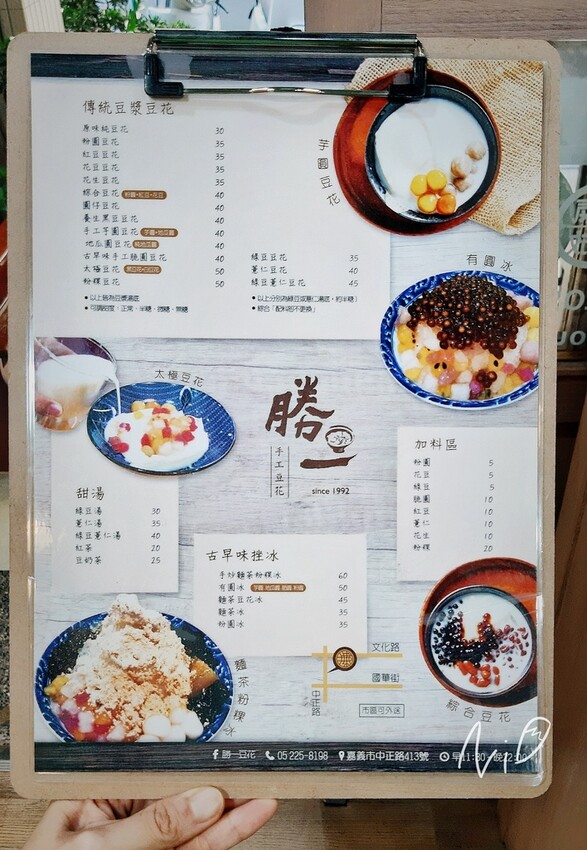 傳統豆漿豆花
原味純豆花 30
粉圓豆花 35
紅豆豆花 35
花豆豆花 35
花生豆花 35
綜合豆花 粉圓+紅豆+花豆 40
圓仔豆花 40
養生黑豆豆花 40
手工芋圓豆花 芋圓+地瓜圓 40
地瓜圓豆花 純地瓜圓 40
古早味手工脆圓豆花 40
太極豆花 黑豆花+白豆花 50
粉粿豆花 50
●以上皆為豆漿湯底
●可調甜度：正常、半糖、微糖、無糖
綠豆豆花 35
薏仁豆花 40
綠豆薏仁豆花 45
●以上分別為綠豆或薏仁湯底，約半糖！
●綜合「配料恕不更換」
芋圓豆花
有圓冰
太極豆花
勝一
手工豆花
since 1992
加料區
粉圓 5
花豆 5
綠豆 5
脆圓 10
紅豆 10
薏仁 10
花生 10
粉粿 20
甜湯
綠豆湯 30
薏仁湯 35
綠豆薏仁湯 40
紅茶 20
豆奶茶 25
古早味挫冰
手炒麵茶粉粿冰 60
有圓冰 50
麵茶豆花冰 45
麵茶冰 35
粉圓冰 35
麵茶粉粿冰
文化路
國華街
中正路
市區可外送
綜合豆花
勝一豆花 05 225-8198 嘉義市中正路413號 早11:30~晚22:00